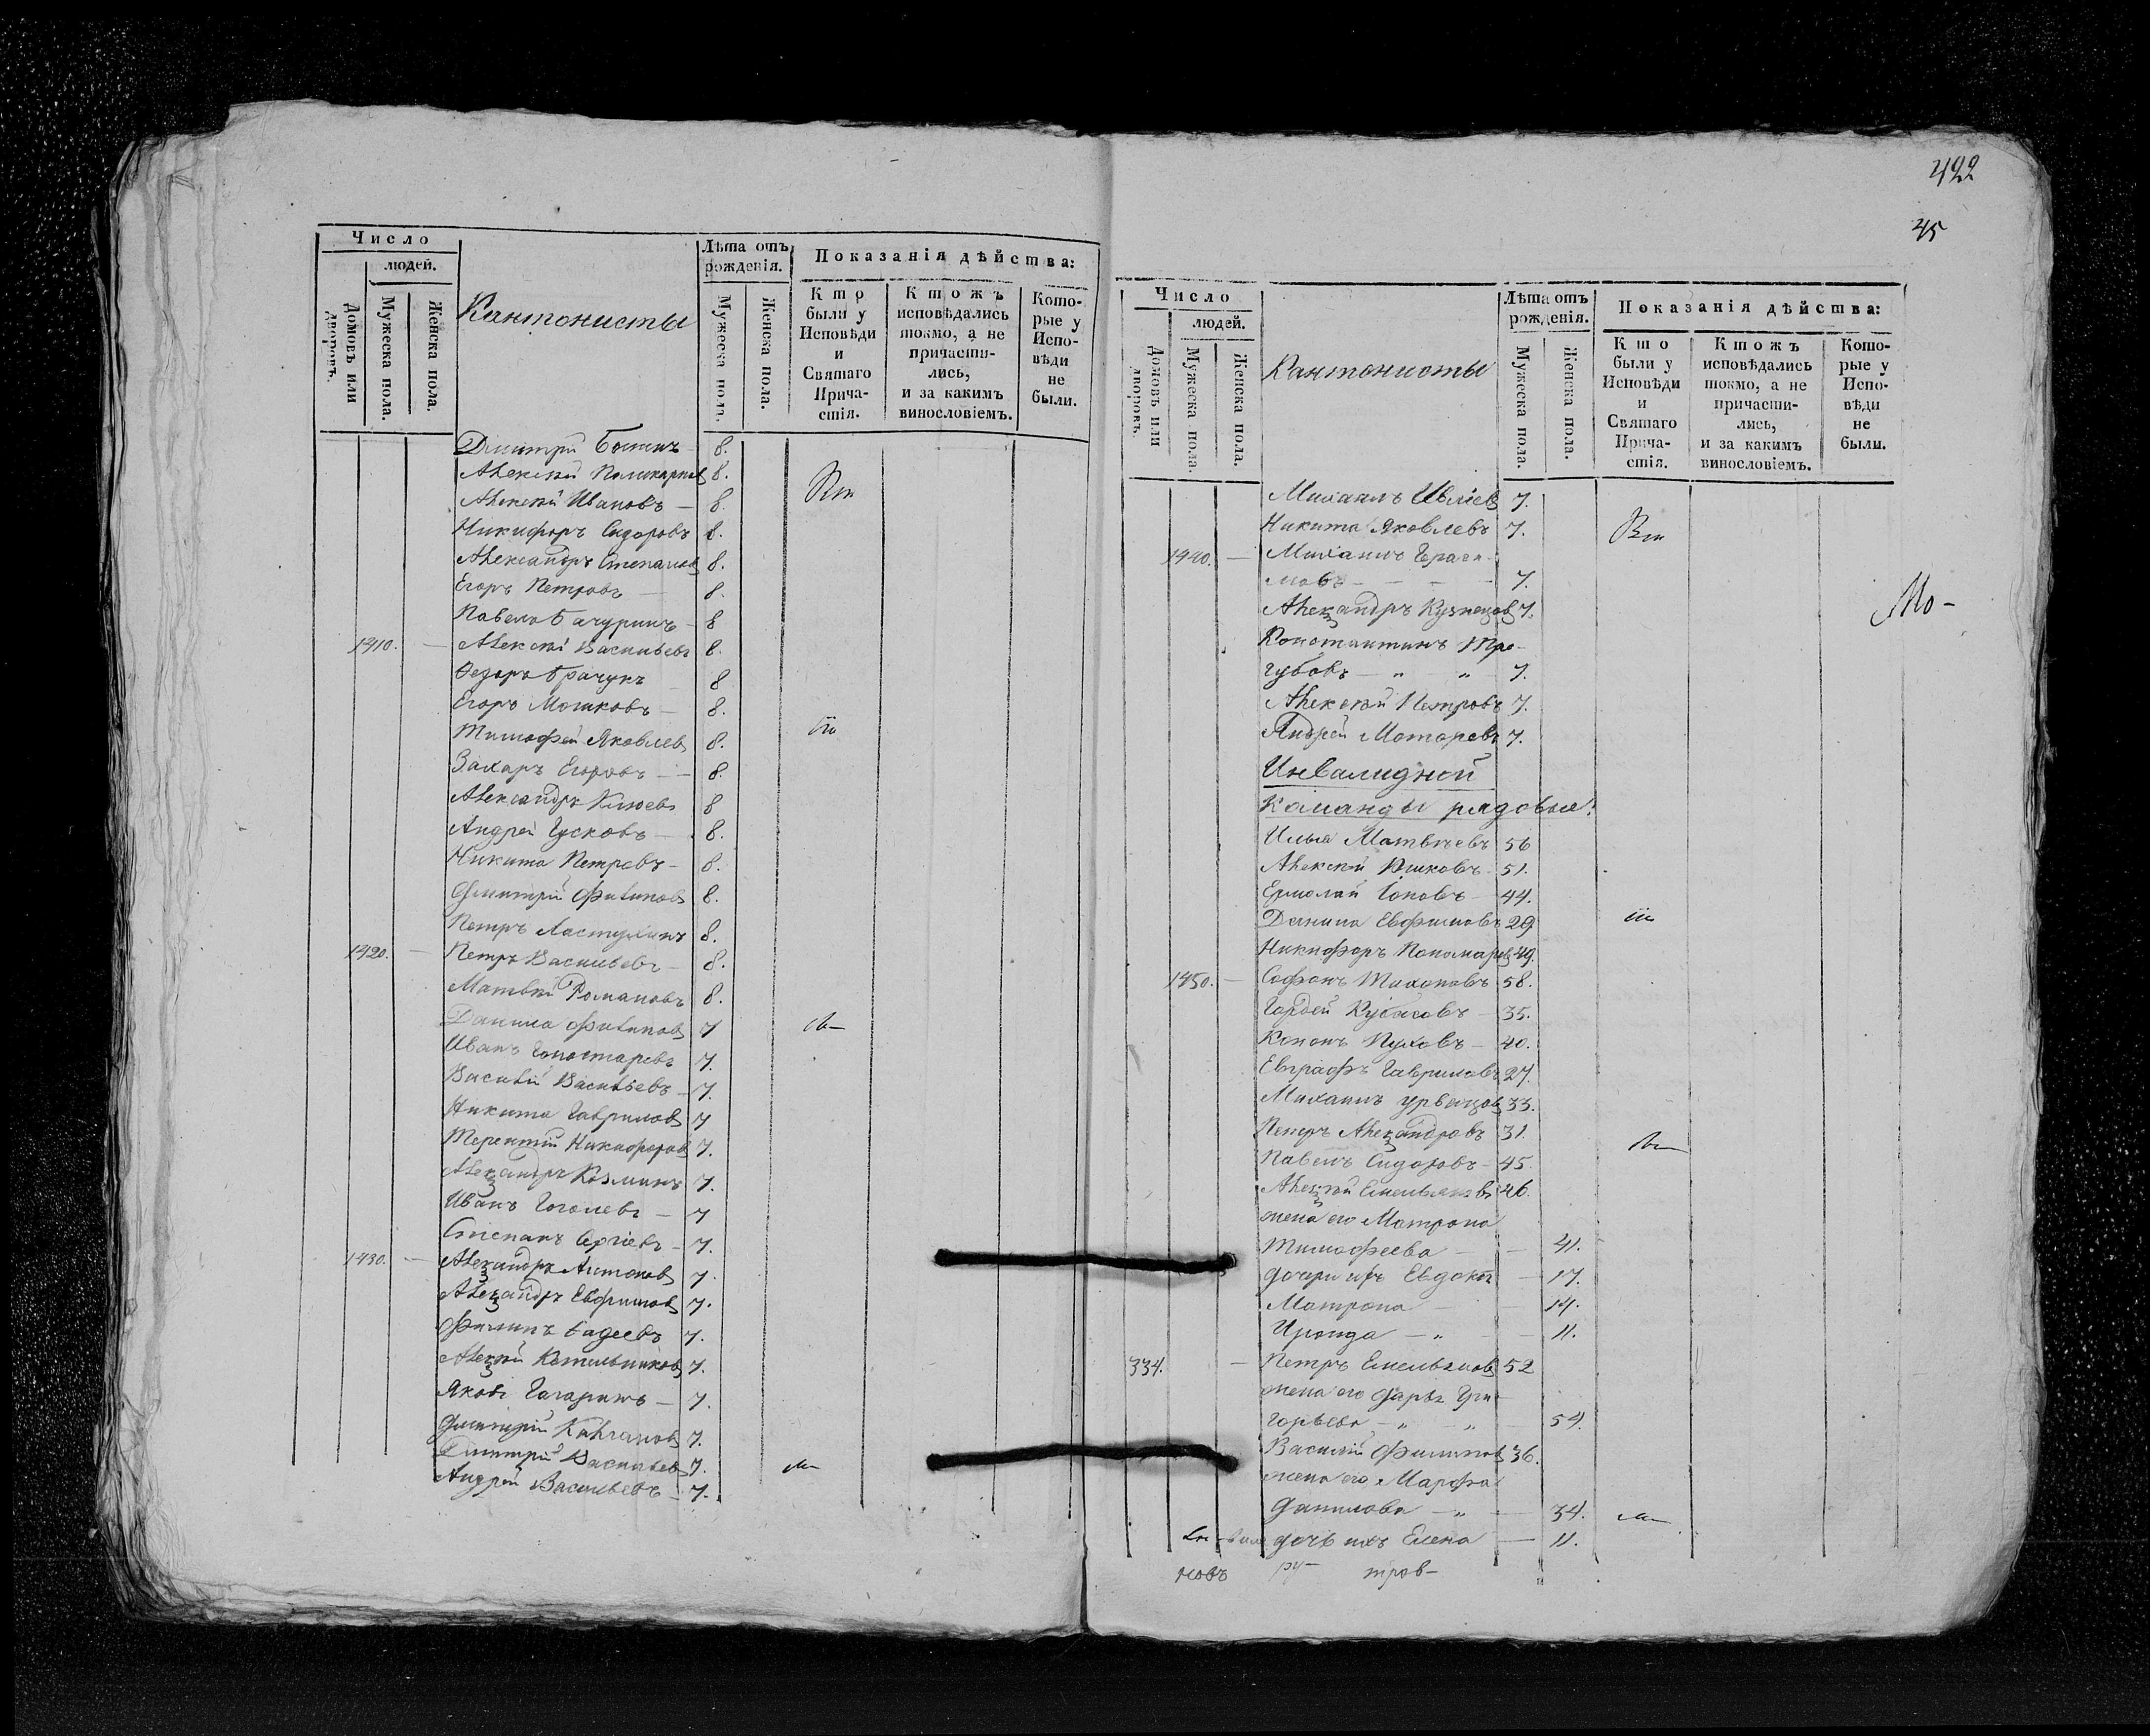 Число
людей.
Домовъ или дворовъ.
Мужеска пола.
Женска пола.
Кантонисты
Лѣта отъ рожденія.
Мужеска пола.
Женска пола.
Показанія дѣйства:
Кто были у Исповѣди и Святаго Прича-стія.
Ктожъ исповѣдались токмо, а не причасти-лись, и за какимъ винословіемъ.
Кото-рые у Испо-вѣди не были.
Дмитрій 8.
Алексѣй Поликарпов 8.
Алексѣй Ивановъ — 8.
Никифоръ Сидоровъ 8.
Александръ Степанов 8.
Егоръ Петровъ — 8.
Павелъ Бачуринъ — 8
1410. — Алексѣй Васильевъ 8.
Федоръ Брачукъ 8
Егоръ Мошковъ — 8.
Тимофей Яковлев 8.
Захаръ Егоровъ — 8.
Александръ Князевъ 8
Андрей Гусковъ — 8.
Никита Петровъ — 8.
Дмитрій Филипов 8.
Петръ Ластухинъ 8.
1420. — Петръ Васильевъ — 8.
Матвѣй Романовъ 8.
Данила Филипов 7
Иванъ 7.
Василій Васильевъ — 7.
Никита Гаврилов 7
Терентій Никифоров 7.
Александръ Козминъ 7.
Иванъ Гоголевъ — 7
Степанъ Сергіевъ — 7.
1430. — Александръ Антонов 7.
Александръ Евфимов 7.
Филипъ Бадеевъ 7.
Алексѣй Котельников 7.
Яковъ Гагаринъ — 7.
Дмитрій Калганов 7.
Дмитрій Васильев 7.
Андрей Васильевъ — 7.
422
45
Число
людей.
Домовъ или дворовъ.
Мужеска пола.
Женска пола.
Кантонисты
Лѣта отъ рожденія.
Мужеска пола.
Женска пола.
Показанія дѣйства:
Кто были у Исповѣди и Святаго Прича-стія.
Ктожъ исповѣдались токмо, а не причасти-лись, и за какимъ винословіемъ.
Кото-рые у Испо-вѣди не были.
Михаилъ Ивлиев 7.
Никита Яковлевъ 7.
1440. — Михаилъ Гераси-
мовъ — 7.
Александръ Кузнецов 7.
Константинъ Тре-
губовъ — „ „ 7.
Алексѣй Петровъ 7.
Андрей Моторевъ 7.
Мо-
Инвалидной
Команды рядовые:
Илья Матвѣевъ 56
Алексѣй 51.
Ермолай Поповъ — 44.
Данила Евфимовъ 29
Никифоръ Пономарев 49.
1450. — Софонъ Тихоновъ 58.
Гордей 35.
Кононъ Пуховъ — 40.
Евграфъ Гавриловъ 27.
Михаилъ Урванцов 33.
Петръ Александровъ 31.
Павелъ Сидоровъ — 45.
Алексѣй Емельяновъ 46.
жена его Матрона
Тимофеева — 41.
дочери ихъ Евдокія — 17.
Матрона — 14.
Ироида — „ — 11.
334. — Петръ Емельянов 52
жена его Дарья Гри-
горьева — „ „ 54.
Василій Филипов 36.
жена его Марфа
Данилова — „ — 34.
дочь ихъ Елена — 11.
новъ тров-